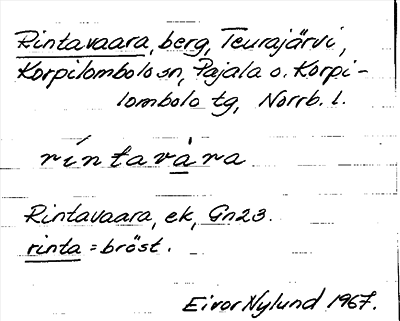 Rintavaara, berg, Teurajärvi,
Korpilombolo sn, Pajala o. Korpi-
lombolo tg, Norrb. l.
ríntavàra
Rintavaara, ek, Gn23.
rinta = bröst.
Eivor Nylund 1967.